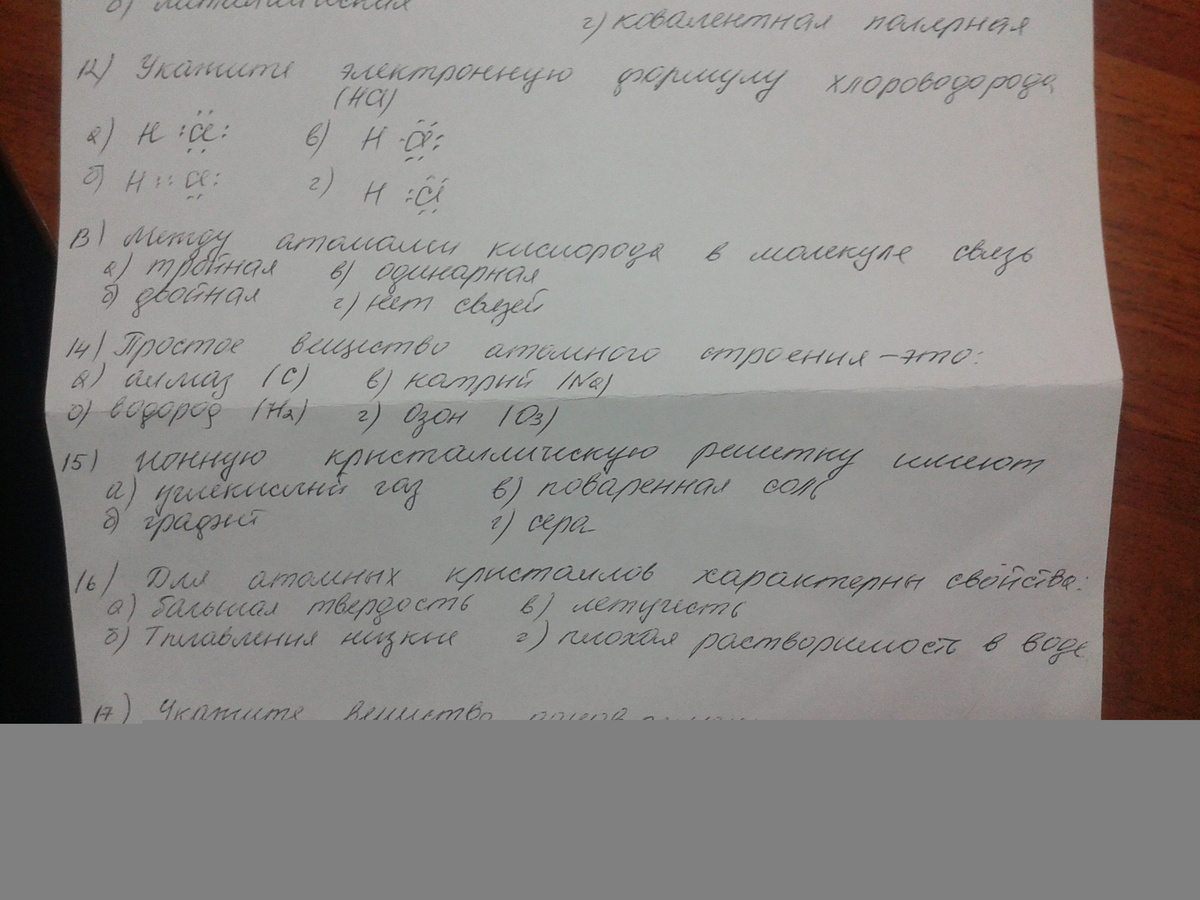 г) ковалентная полярная
12) Укажите электронную формулу хлороводорода
(HCl)
а) H :Cl: в) H ·Cl:
б) H ::Cl: г) H :Cl
13) Между атомами кислорода в молекуле связь
а) тройная в) одинарная
б) двойная г) нет связей
14) Простое вещество атомного строения – это:
а) алмаз (C) в) натрий (Na)
б) водород (H2) г) Озон (O3)
15) Ионную кристаллическую решетку имеют
а) углекислый газ в) поваренная соль
б) графит г) сера
16) Для атомных кристаллов характерны свойства:
а) большая твердость в) летучесть
б) Тплавления низкие г) плохая растворимость в воде
17) Укажите вещество